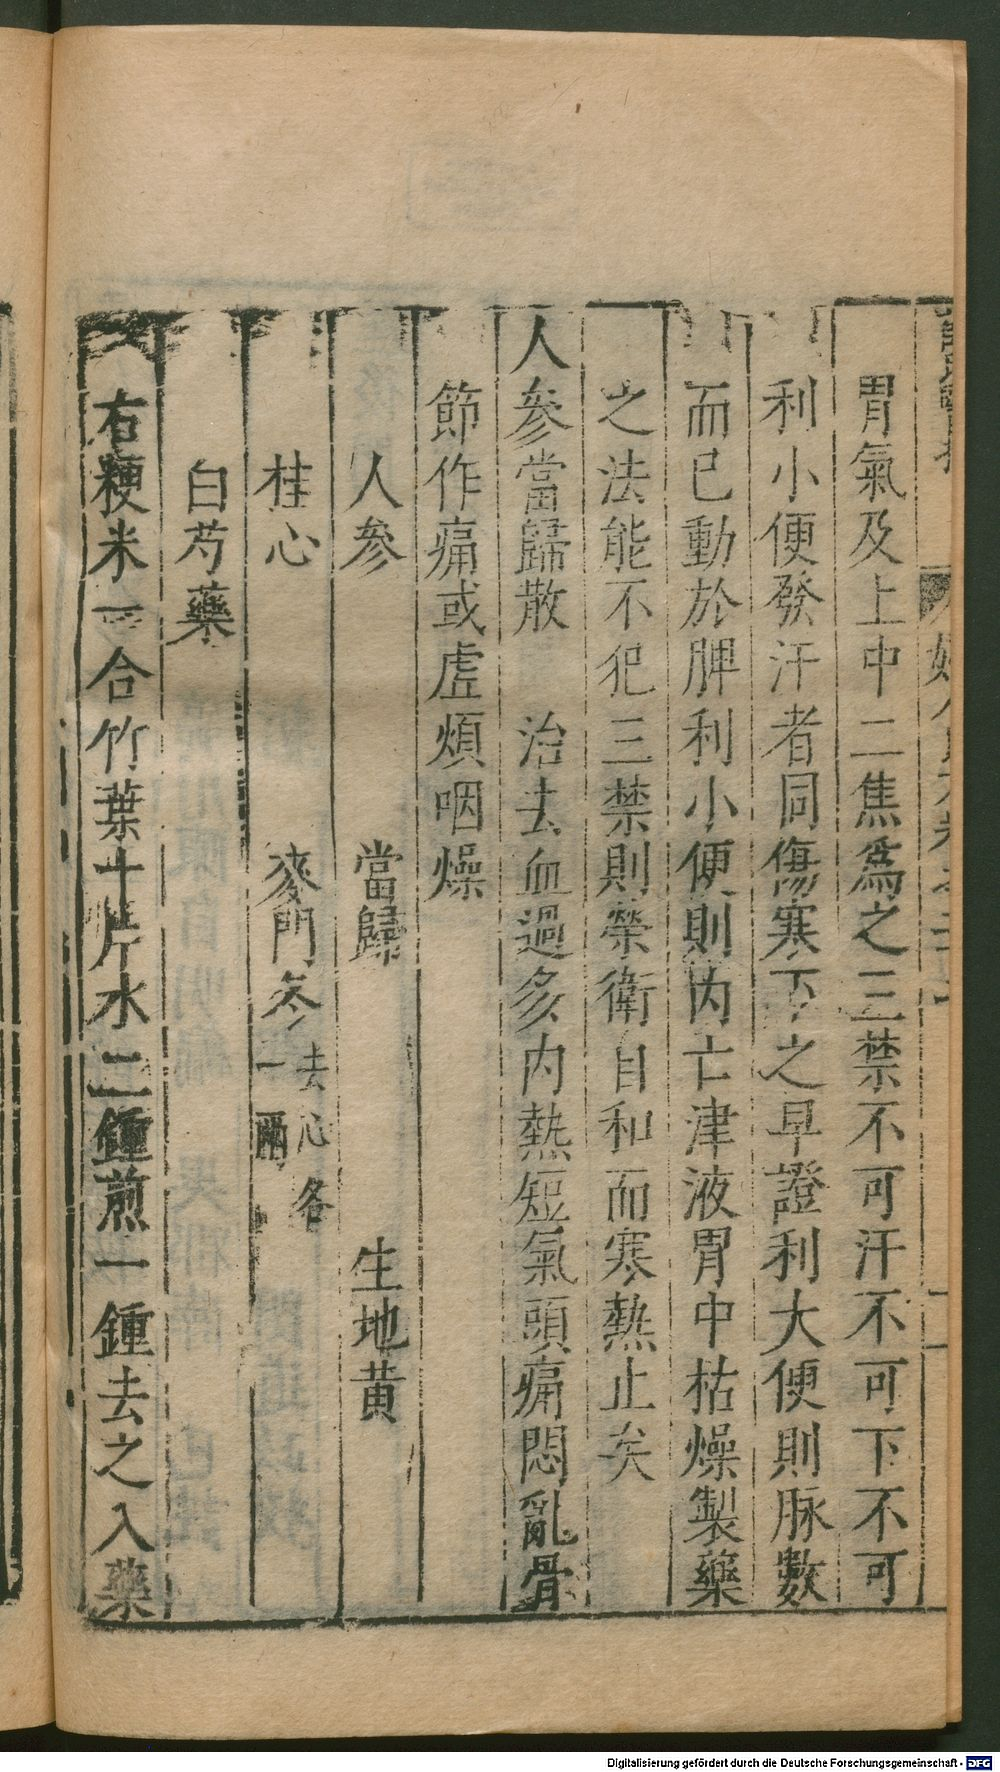 胃氣及上中二焦爲之三禁不可汗不可下不可
利小便發汗者同傷寒下之早證利大便則脉數
而已動於脾利小便則内亡津液胃中枯燥製藥
之法能不犯三禁則榮衛自和而寒熱止矣
人參當歸散　治去血過多内熱短氣頭痛悶亂骨
節作痛或虛煩咽燥
人參　當歸　生地黄
桂心　麥門冬去心各一兩
白芍藥
右粳米一合竹葉十片水二鍾煎一鍾去之入藥
Digitalisierung gefördert durch die Deutsche Forschungsgemeinschaft - DFG